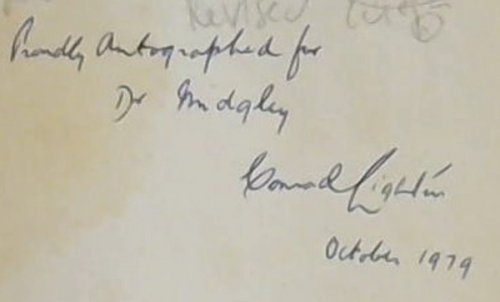 Revised
Proudly Autographed for
Dr Midgley
Conrad Lightin
October 1979